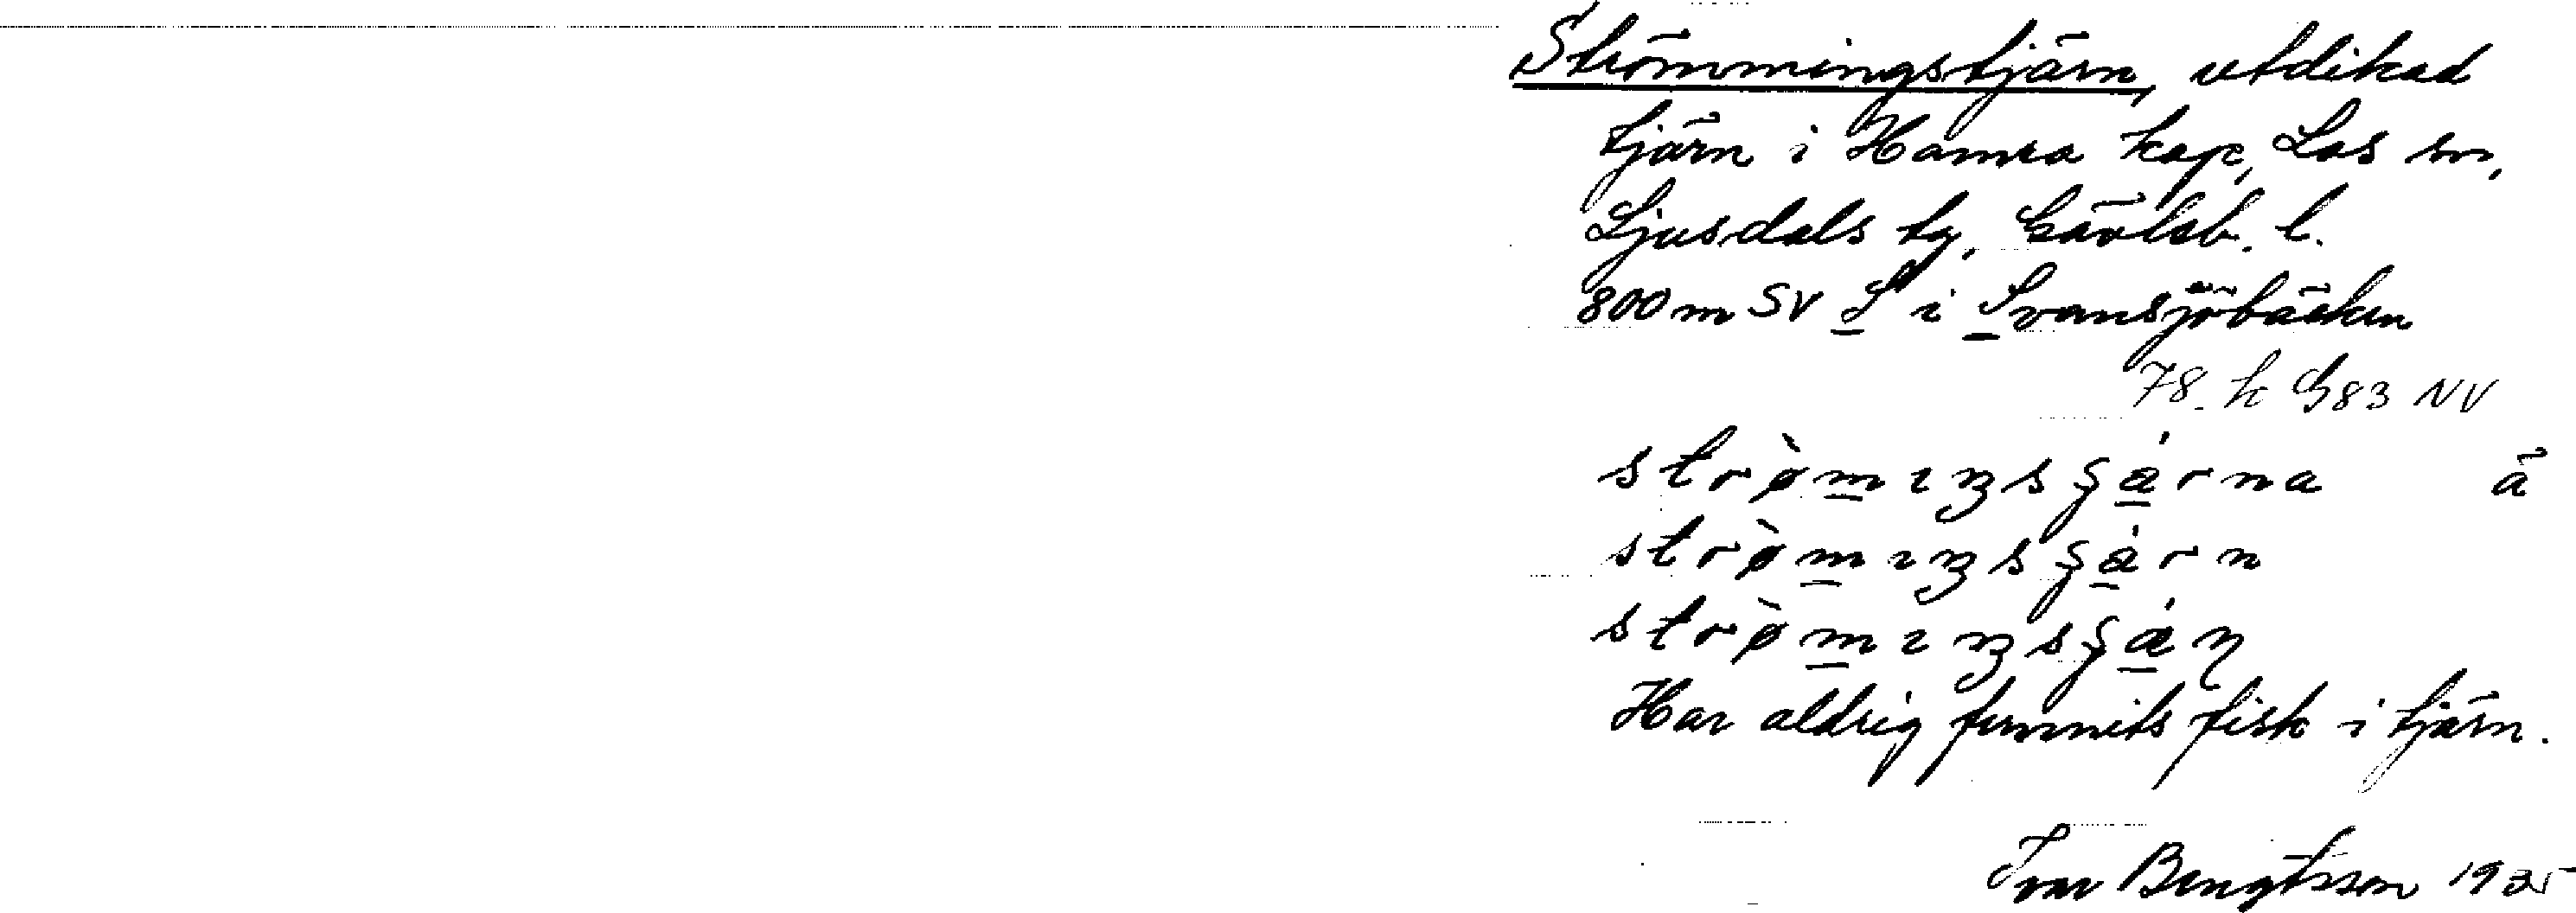 Strömmingstjärn, utdikad
tjärn i Hamra kap, Los sn,
Ljusdals tg, Gävleb. l.
800 m SV S i Svansjöbäcken
78. k G83 NV
strø̀mıŋsʂárna ä
strø̀mıŋsʂárn
strø̀mıŋsʂáɳ
Har aldrig funnits fisk i tjärn.
Ivar Bengtsson 1935